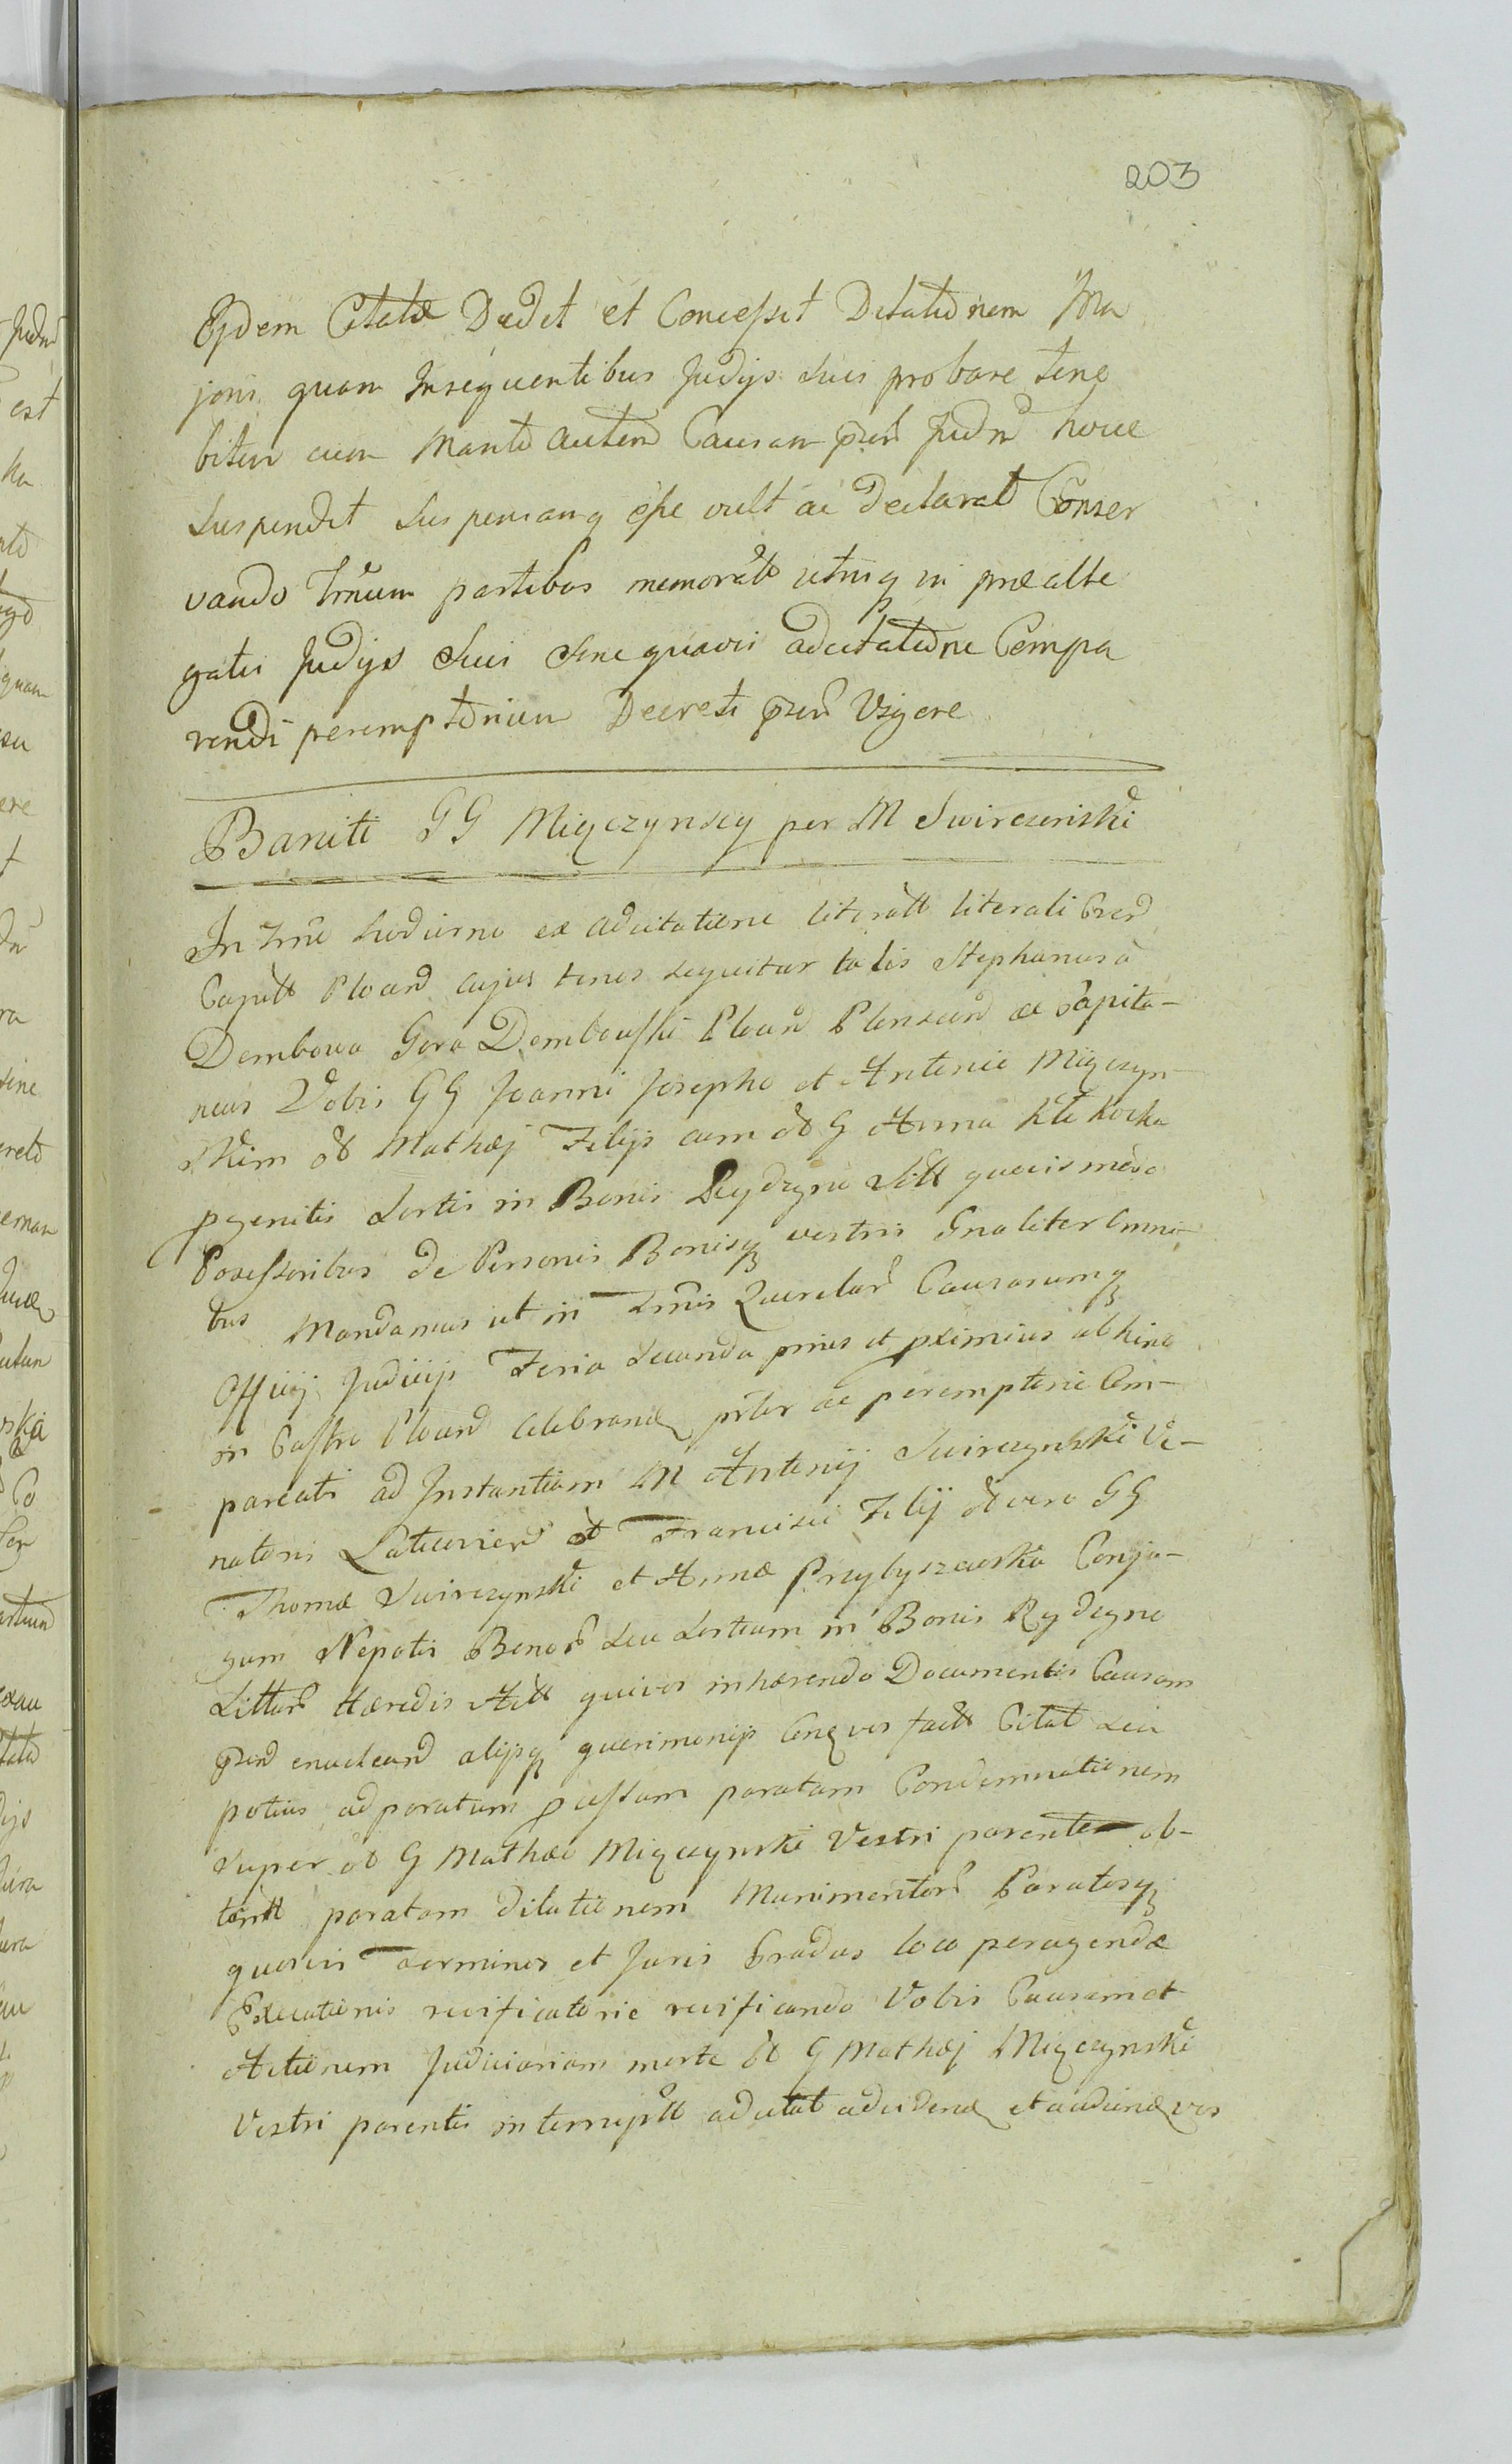 203
Ejdem Citatæ Dedit et Concessit Dilationem Ma
joris quam Insequentibus Judijs suis probare tene
bitur cum Manto autem Causam pñt Judm hocce
suspendit suspensamq esse vult ac Declarat Conser
vando Trnum partibus memoratt utrisq in præalle
gatis Judijs suis sine quavis adcitatione Compa
rendi peremptorium Decreti pñt Vigore
Baniti GG Miączynscy per M Swirczenski
In Trno hodierno ex adcitatione literatt literali
Capitt Plocen cujus tenor sequitur talis Stephanus a
Dembowa Gora Dembowski Plocen Plonscen ac Capita-
neus Vobis GG Joanni Josepho et Antonio Miączyn-
skim olt Mathæj Filijs cum olt G Anna Kostka
pgenitis Sortis in Bonis Rydzyno Sitt quovismodo
Possessoribus de Personis Bonisq vestris Gnaliter omni-
bus Mandamus ut in Trnis Querelar Causarumq
Officij Judicij Feria Secunda prius et pximius abhinc
in Castro Plocen celebrand prtr ac peremptorie Com-
pareatis ad Instantiam M Antonij Swirczynski Ve-
natoris Laticovien olt Francisci Filij olt vero GG
Thomæ Swirczynski et Annæ Przybyszewska Conju-
gum Nepotis Bonor seu Sortium in Bonis Rydzyno
Sittar Hæredis Att quivos inhærendo Documentis Causam
pñt enucleand alijsq querimonijs Conq vos factt Citat seu
potius ad paratum passum paratam Condemnationem
super olt G Mathæo Miączynski Vestri parente ob-
tentt paratam dilationem Munimentor Paratosq
quosvis Terminos et Juris Gradus loco peragendæ
Executionis reificatorie reificando Vobis Causam et
Actionem Judiciariam morte olt G Mathæj Miączynski
Vestri parentis interruptt adcitat ad vidend et audiend vos